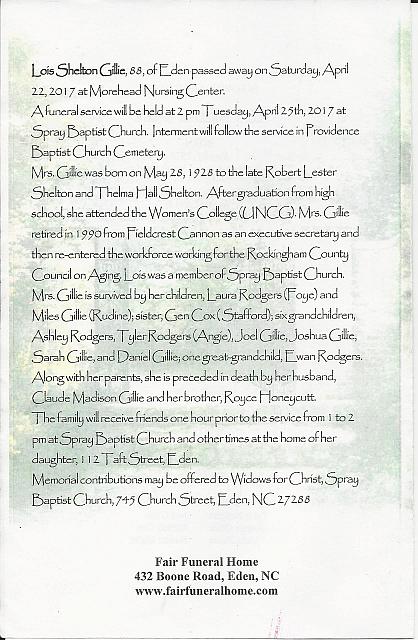 Lois Shelton Gillie, 88, of Eden passed away on Saturday, April
22, 2017 at Morehead Nursing Center.
A funeral service will be held at 2 pm Tuesday, April 25th, 2017 at
Spray Baptist Church. Interment will follow the service in Providence
Baptist Church Cemetery.
Mrs. Gillie was born on May 28, 1928 to the late Robert Lester
Shelton and Thelma Hall Shelton. After graduation from high
school, she attended the Women's College (UNCG). Mrs. Gillie
retired in 1990 from Fieldcrest Cannon as an executive secretary and
then re-entered the workforce working for the Rockingham County
Council on Aging. Lois was a member of Spray Baptist Church.
Mrs. Gillie is survived by her children, Laura Rodgers (Foye) and
Miles Gillie (Rudine); sister, Gen Cox (,Stafford); six grandchildren,
Ashley Rodgers, Tyler Rodgers (Angie), Joel Gillie, Joshua Gillie,
Sarah Gillie, and Daniel Gillie; one great-grandchild, Ewan Rodgers.
Along with her parents, she is preceded in death by her husband,
Claude Madison Gillie and her brother, Royce Honeycutt.
The family will receive friends one hour prior to the service from 1 to 2
pm at Spray Baptist Church and other times at the home of her
daughter, 112 Taft Street, Eden.
Memorial contributions may be offered to Widows for Christ, Spray
Baptist Church, 745 Church Street, Eden, NC 27288
Fair Funeral Home
432 Boone Road, Eden, NC
www.fairfuneralhome.com